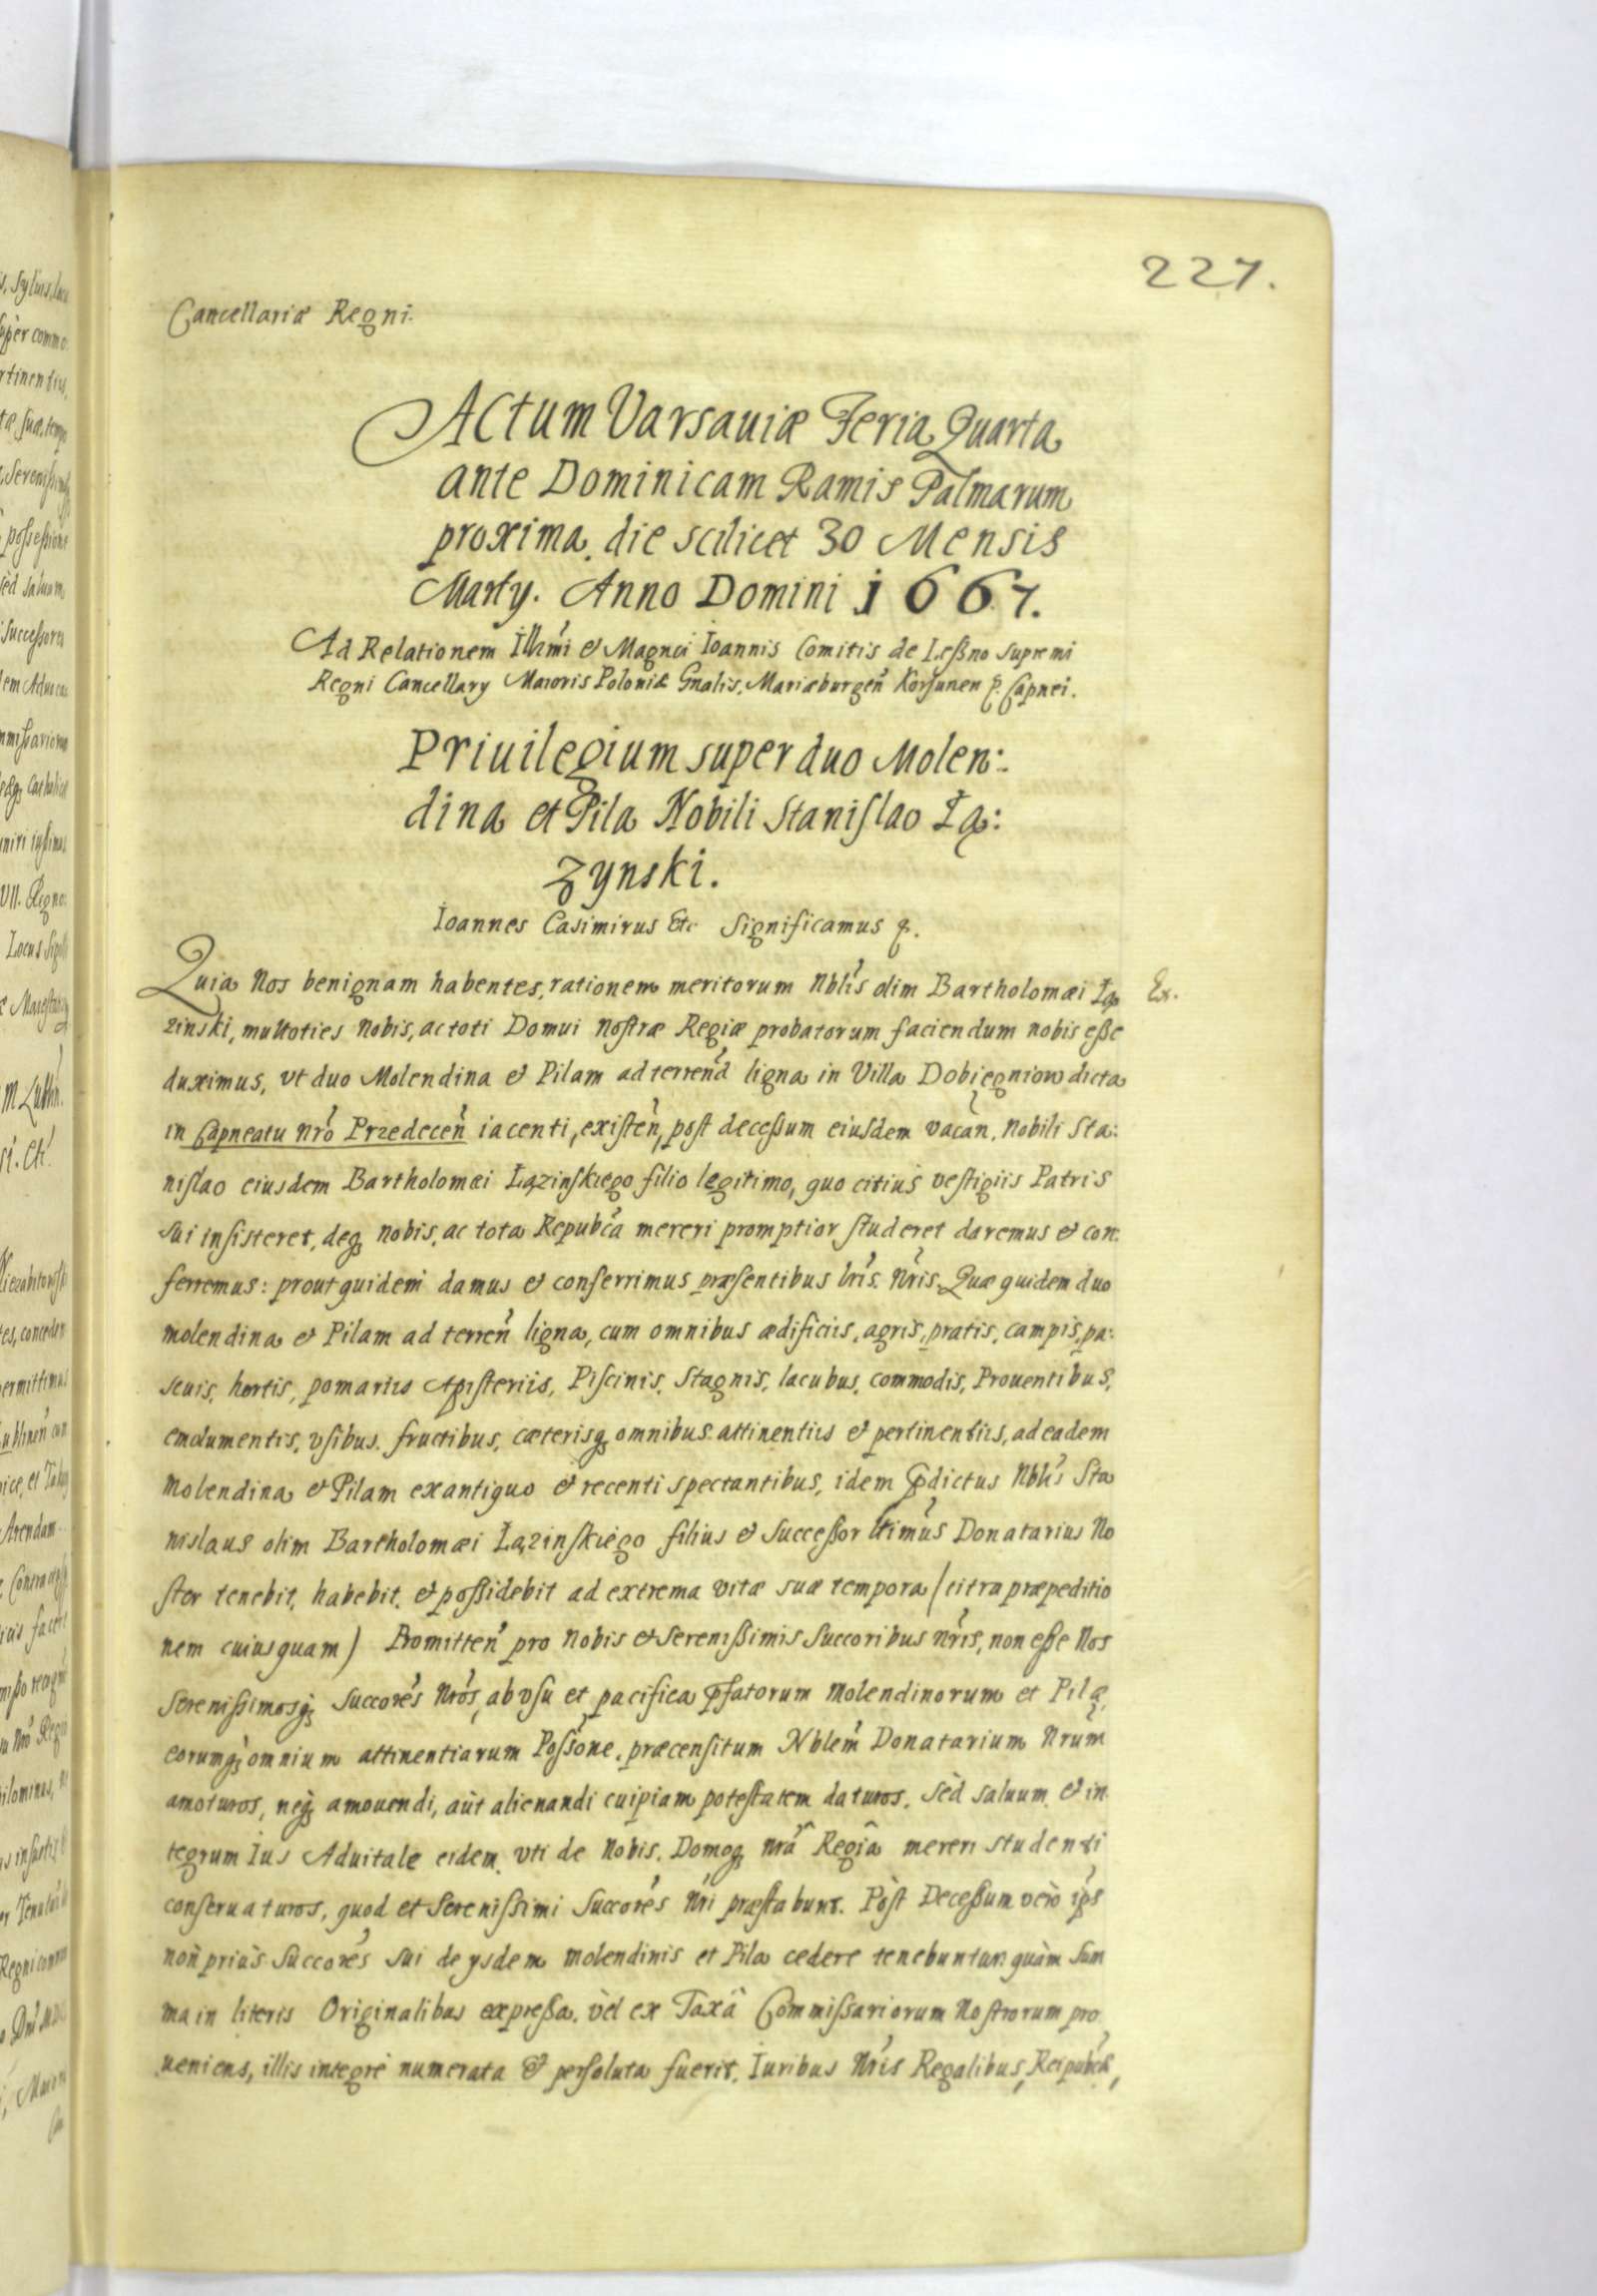 227.
Cancellariæ Regni.
Actum Varsauiæ Feria Quarta
ante Dominicam Ramis Palmarum
proxima, die scilicet 30 Mensis
Martÿ. Anno Domini 1667.
Ad Relationem Illmi et Magnci Ioannis Comitis de Leßno Supremi
Regni Cancellarÿ Maioris Poloniæ Gnalis, Mariæburgen Korsunen p. Capnei.
Priuilegium super duo Molen:
dina et Pila Nobili Stanislao Łą:
zynski.
Ioannes Casimirus Etc Significamus p.
Quia Nos benignam habentes, rationem meritorum Nblis olim Bartholomæi Łą Ex.
zinski, multoties Nobis, ac toti Domui Nostræ Regiæ probatorum faciendum nobis eße
duximus, vt duo Molendina et Pilam ad terrend ligna in Villa Dobiegniow dicta
in Capneatu nro Przedecen iacenti, existen, post deceßum eiusdem vacan, Nobili Sta:
nislao eiusdem Bartholomæi Łązinskiego filio legitimo, quo citius vestigiis Patris
sui insisteret, deq nobis, ac tota Repubca mereri promptior studeret daremus et con
ferremus: prout quidem damus et conferrimus præsentibus lris. Nris. Quæ quidem duo
molendina et Pilam ad terren ligna, cum omnibus ædificiis, agris, pratis, campis, pa:
scuis, hortis, pomariis Apisteriis, Piscinis, Stagnis, lacubus, commodis, Prouentibus,
emolumentis, vsibus, fructibus, cæterisq omnibus attinentiis et pertinentiis, ad eadem
Molendina et Pilam ex antiquo et recenti spectantibus, idem pdictus Nblis Sta
nislaus olim Bartholomæi Łązinskiego filius et Succeßor ltimus Donatarius No
ster tenebit, habebit, et poßidebit ad extrema vitæ suæ tempora (citra præpeditio
nem cuiusquam) Promitten pro Nobis et Sereníßimis Succoribus nris, non eße Nos
Serenissimosq Succores Nros, ab vsu et pacifica pfatorum Molendinorum et Pilæ,
eorumq omnium attinentiarum Poßione, præcensitum Nblem Donatarium Nrum
amoturos, neq amouendi, aut alienandi cuipiam potestatem daturos, sed saluum et in
tegrum Ius Aduitale eidem, vti de Nobis, Domoq nra Regia mereri studenti
conseruaturos, quod et Serenissimi Succores Nri præstabunt. Post Deceßum vero ips
non prius Succores sui de ÿsdem molendinis et Pila cedere tenebuntur quàm Sum
ma in literis Originalibus expreßa, vel ex Taxâ Commissariorum Nostrorum pro
ueniens, illis integre numerata et persoluta fuerit, Iuribus Nris Regalibus, Reipubcæ,